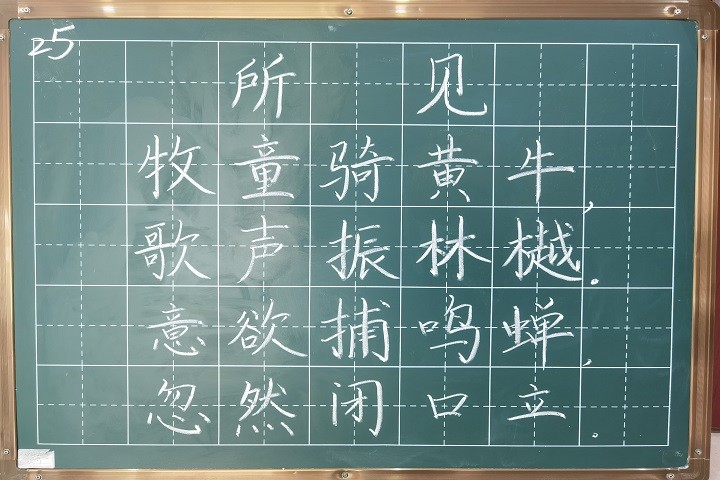 25
所见
牧童骑黄牛，
歌声振林樾。
意欲捕鸣蝉，
忽然闭口立。